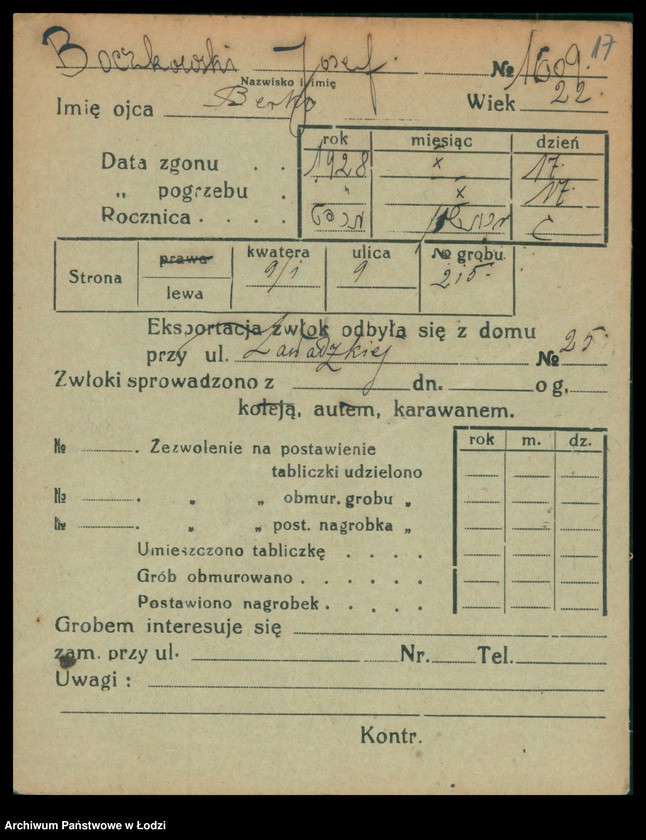 Boczkowski Josef. № 1609. 17
Nazwisko i imię
Imię ojca Berko Wiek 22
rok miesiąc dzień
Data zgonu . . 1928 x 17.
„ pogrzebu . " x 17.
Rocznica . . . .
Strona prawa kwatera ulica № grobu
lewa 9/I 9 215.
Eksportacja zwłok odbyła się z domu
przy ul. Zawadzkiej № 25.
Zwłoki sprowadzono z dn. o g.
koleją, autem, karawanem.
rok m. dz.
№ . Zezwolenie na postawienie
tabliczki udzielono
№ . „ „ obmur. grobu „
№ . „ „ post. nagrobka „
Umieszczono tabliczkę . . . .
Grób obmurowano . . . . . .
Postawiono nagrobek . . . . .
Grobem interesuje się
zam. przy ul. Nr. Tel.
Uwagi :
Kontr.
Archiwum Państwowe w Łodzi